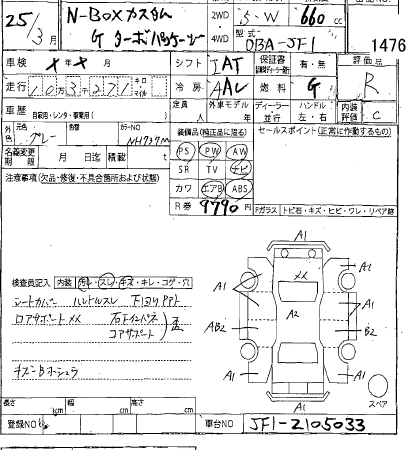 25/3月
N-BOXカスタム
G ターボパッケージ
2WD
4WD
5-W
660 cc
型式
DBA-JF1
1476
車検 メ年メ月
シフト
IAT
保証書
有・無
評価点
R
走行 10万3千271 キロ マイル
冷房
AAC
燃料
G
車歴
自家用・レンタ・事業用( )
定員 人
外車モデル 年
ディーラー
並行
ハンドル
左・右
内装評価
C
外色
元色
グレー
色替
カラーNO
NH737M
名義変更期限 月 日迄
積載 t
装備品(純正品に限る)
セールスポイント(正常に作動するもの)
PS PW AW
SR TV ナビ
カワ エアB ABS
R券 9790 円
注意事項(欠品・修復・不具合箇所および状態)
Fガラス トビ石・キズ・ヒビ・ワレ・リペア跡
検査員記入
内装 汚レ・スレ・キズ・キレ・コゲ・穴
シートカバー ハンドルスレ 下回りサビ
ロアサポートメメ
コアサポート
A1
A1
A1
メメ
A1
A2
AB2
B2
A1
A1
A1
スペア
長さ cm
幅 cm
高さ cm
登録NO
車台NO
JF1-2105033